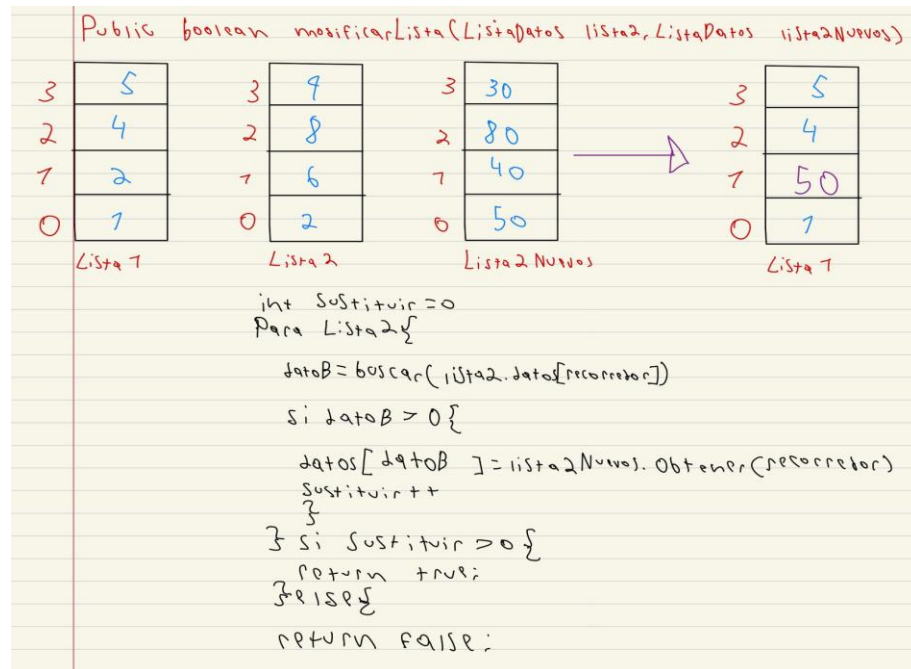 Public boolean modificarLista(ListaDatos lista2, ListaDatos lista2Nuevos)
3 5 3 9 3 30 3 5
2 4 2 8 2 80 2 4
1 2 1 6 1 40 1 50
0 1 0 2 0 50 0 1
Lista 1 Lista 2 Lista2 Nuevos Lista 1
int sustituir=0
Para Lista2{
datoB=buscar(lista2.datos[recorredor])
si datoB > 0{
datos[datoB ]=lista2Nuevos.obtener(recorredor)
sustituir++
}
} si sustituir >0{
return true;
}else{
return false;